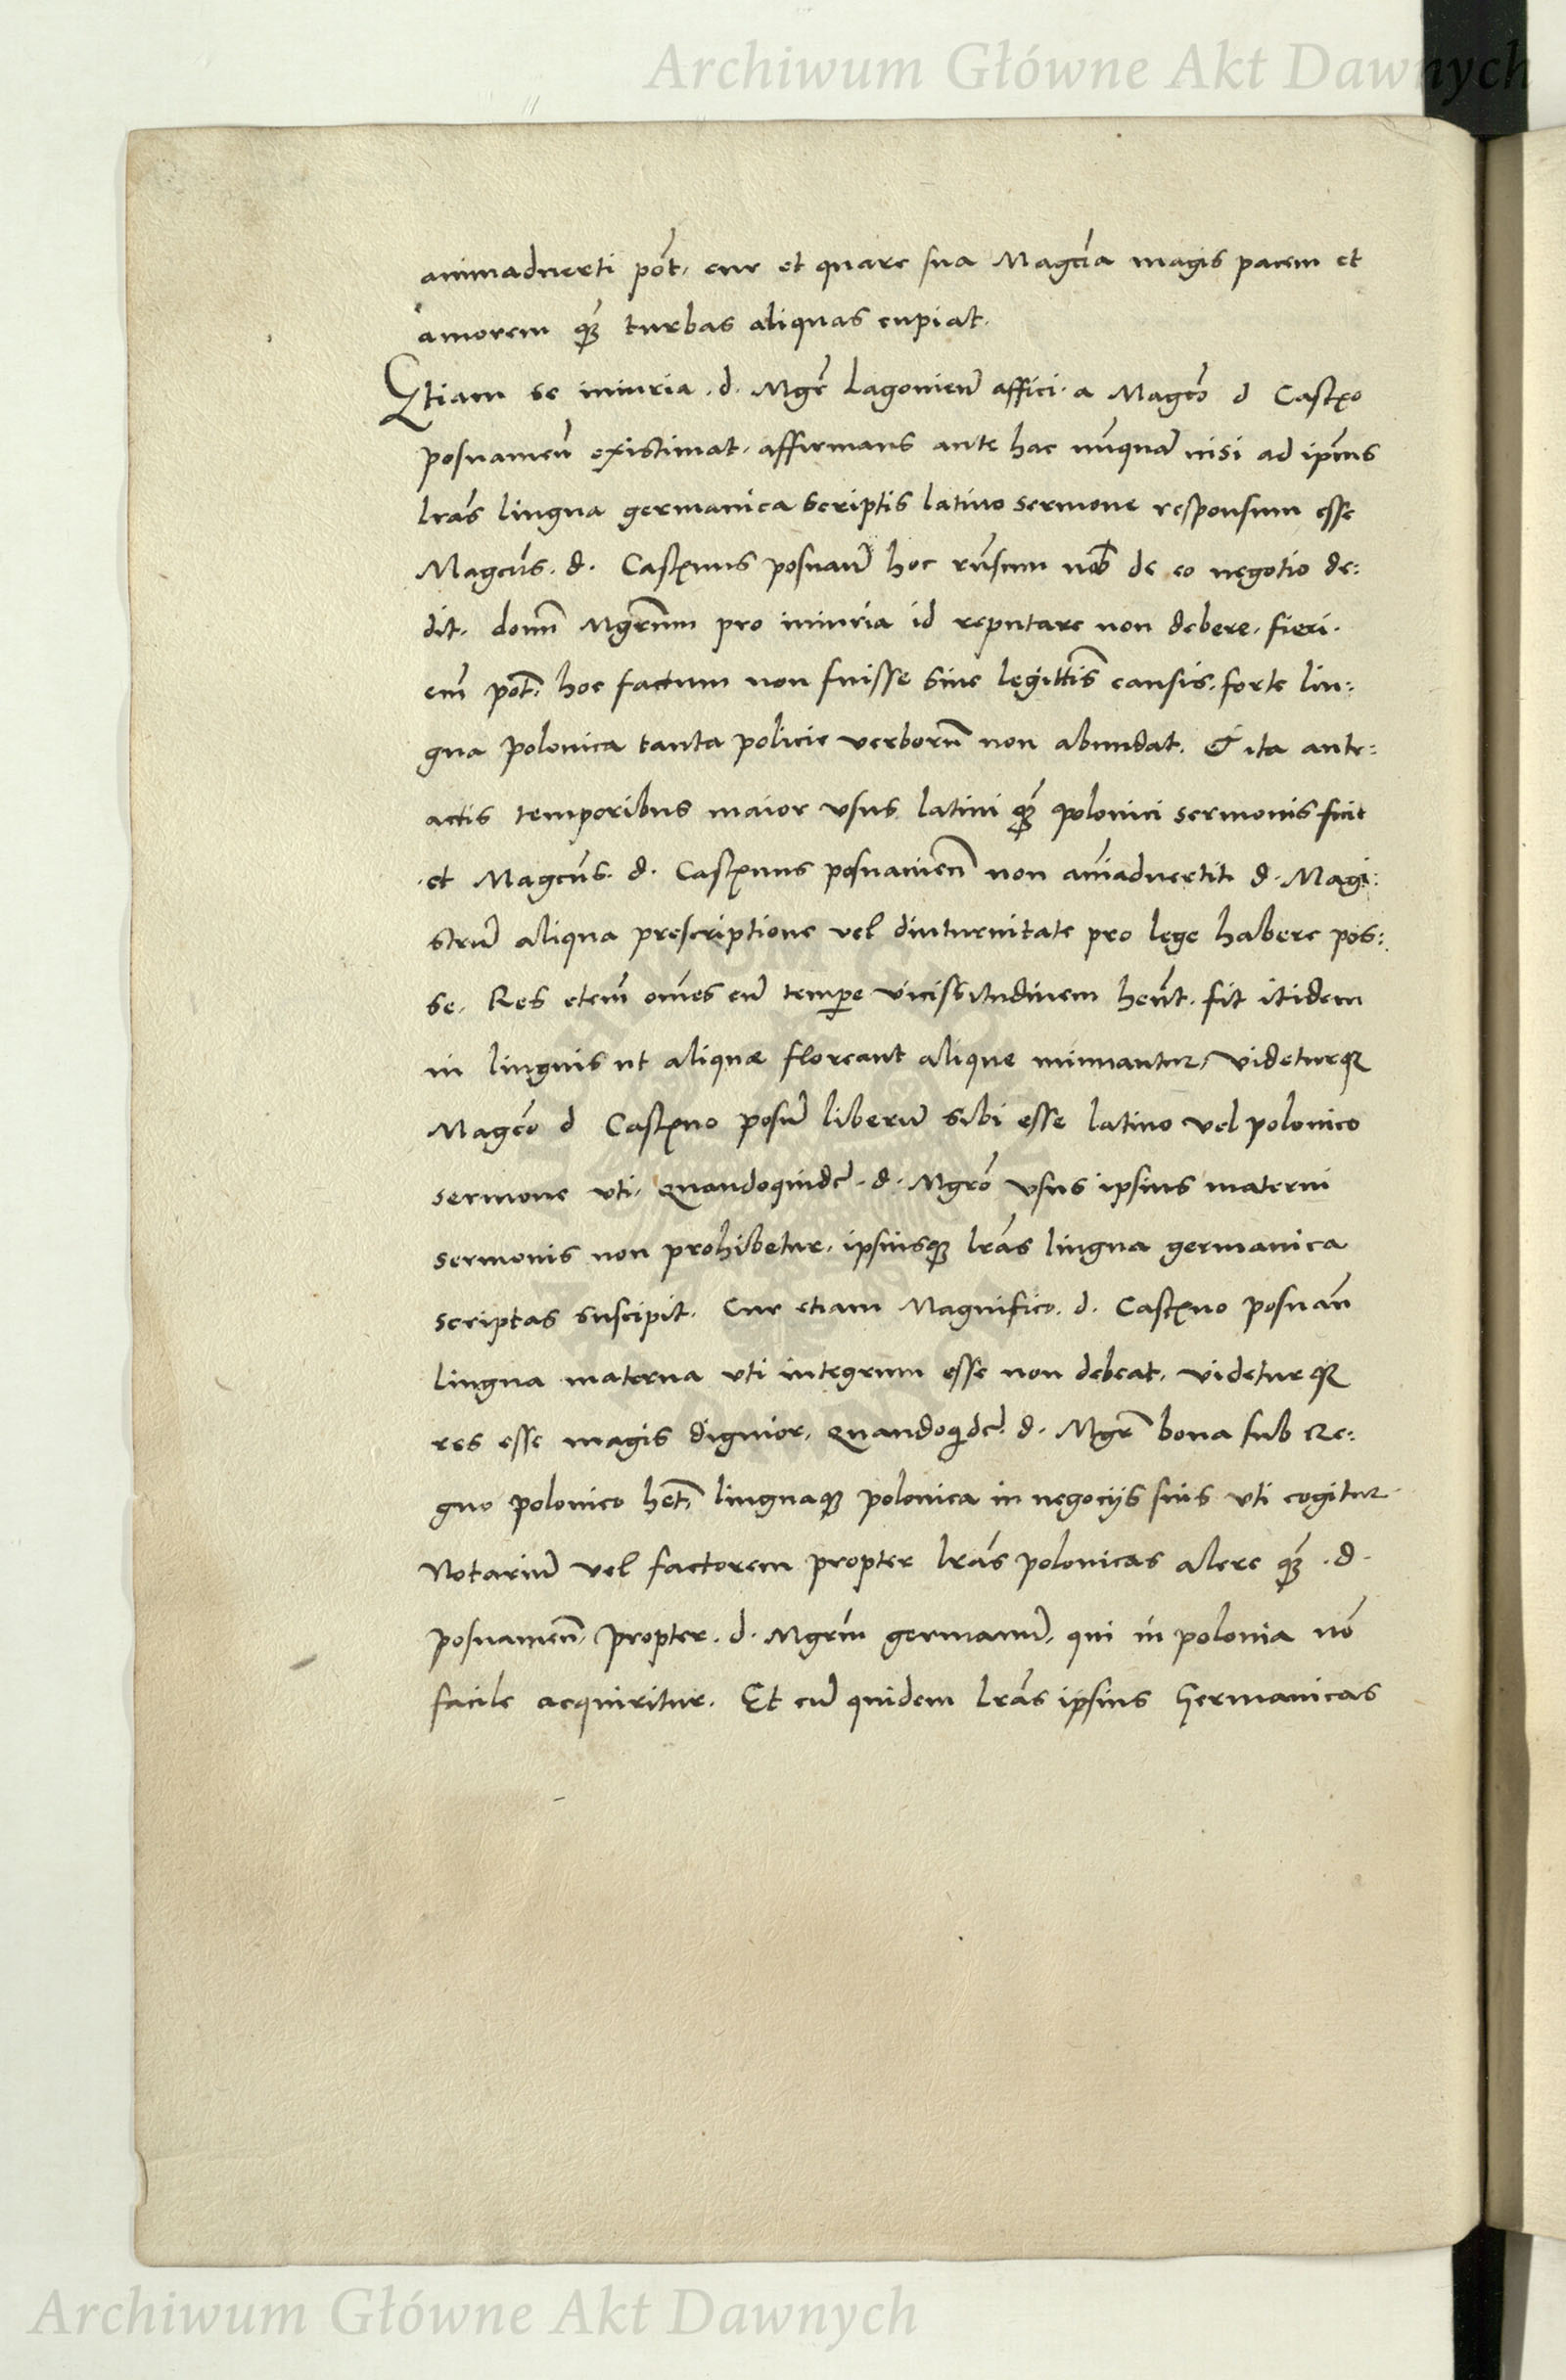 Archiwum Główne Akt Dawnych
animadverti pōt, cur et quare sua Magcīa magis pacem et
amorem q̄ꝫ turbas aliquas cupiat.
Etiam se iniuria . d. Mgr̄ Lagonien̄ affici . a Magcō d Castꝑo
posnanien̄ existimat. affirmans ante hac nūquā nisi ad ip̄ius
lrās lingua germanica scriptis latino sermone responsum esse
Magcūs. d. Castꝑnus posnan̄ hoc rn̄sum nob̄ de eo negotio de:
dit. domn̄ Mgrūm pro iniuria id reputare non debere. fieri.
em̄ pōt. hoc factum non fuisse sine legittīs causis. forte lin:
gua polonica tanta policie verborū non abundat. & ita ante:
actis temporibus maior vsus latini q̄ꝫ polonici sermonis fuit
et Magcūs. d. Castꝑnus posnanien̄ non aīadvertit d. Magi:
strū aliqua prescriptione vel diuturnitate pro lege habere pos:
se. Res etem̄ om̄es cū tempe vicissitudinem hēnt. fit itidem
in linguis ut aliquæ floreant alique minuantur, videturqꝫ
Magcō d Castꝑno posn̄ liberū sibi esse latino vel polonico
sermone vti. quandoquidē. d. Mgrō vsus ipsius materni
sermonis non prohibetur. ipsiusqꝫ lrās lingua germanica
scriptas suscipit. Cur etiam Magnifico. d. Castꝑno posnan̄
lingua materna vti integrum esse non debeat. videturqꝫ
res esse magis dignior. quandoqdē. d. Mgr̄ bona sub Re:
gno polonico hēt. linguaqꝫ polonica in negocijs suis vti cogitur
Notariū vel factorem propter lrās polonicas alere q̄ꝫ . d.
posnanien̄. propter. d. Mgrm̄ germanū. qui in polonia nō
facile acquiritur. Et cū quidem lrās ipsius Germanicas
Archiwum Główne Akt Dawnych